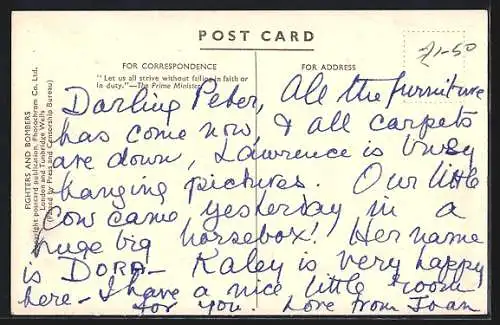 POST CARD
FOR CORRESPONDENCE
FOR ADDRESS
"Let us all strive without failing in faith or
in duty."—The Prime Minister
£1-50
FIGHTERS AND BOMBERS
Copyright postcard publication, Photochrom Co. Ltd.,
London and Tunbridge Wells
(Passed by Press and Censorship Bureau)
Darling Peter, All the furniture
has come now, & all carpets
are down, Lawrence is busy
hanging pictures. Our little
Cow came yesterday in a
huge big horsebox! Her name
is DORA— Kaley is very happy
here - I have a nice little room
for you. Love from Joan